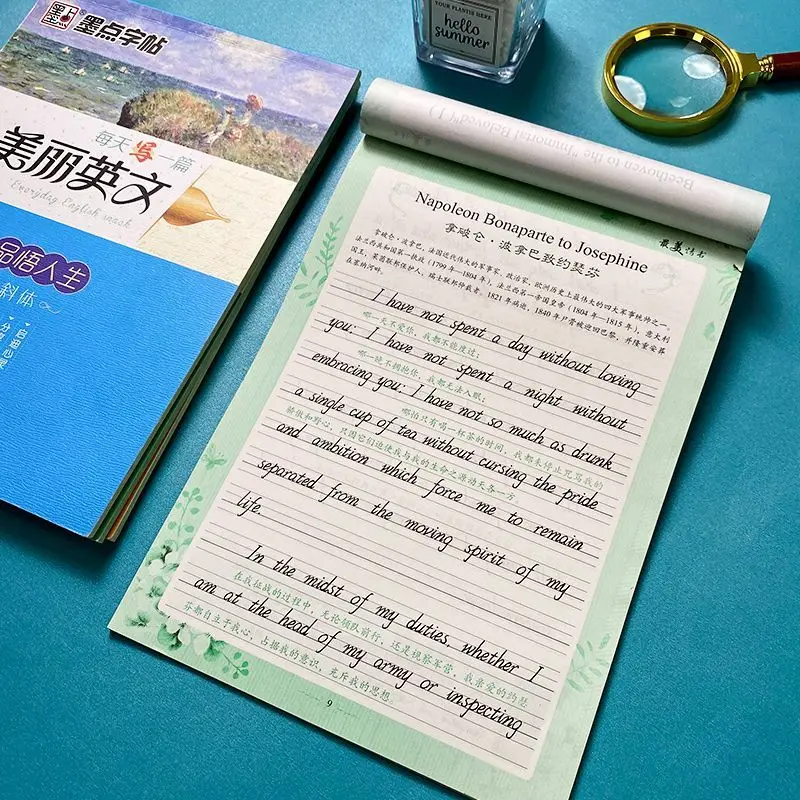 墨点字帖
每天写一篇
美丽英文
Everyday English snack
品悟人生
斜体
YOUR PLANTIS HERE
hello
summer
Beethoven to the "Immortal Beloved"
最美情书
Napoleon Bonaparte to Josephine
拿破仑·波拿巴致约瑟芬
拿破仑·波拿巴，法国近代伟大的军事家、政治家，欧洲历史上最伟大的四大军事统帅之一，
法兰西共和国第一执政（1799年—1804年），法兰西第一帝国皇帝（1804年—1815年），意大利
国王，莱茵联邦保护人，瑞士联邦仲裁者，1821年病逝，1840年尸骨被迎回巴黎，并隆重安葬
在塞纳河畔。
I have not spent a day without loving
哪一天不爱你，我都不能度过；
you; I have not spent a night without
哪一晚不拥抱你，我都无法入眠；
embracing you; I have not so much as drunk
哪怕只有喝一杯茶的时间，我都未停止咒骂我的
a single cup of tea without cursing the pride
骄傲和野心，只因它们迫使我与我的生命之源动天各一方。
and ambition which force me to remain
separated from the moving spirit of my
life.
In the midst of my duties, whether I
在我征战的过程中，无论领队前行，还是视察军营，我亲爱的约瑟
am at the head of my army or inspecting
芬都自立于我心，占据我的意识，充斥我的思想。
9